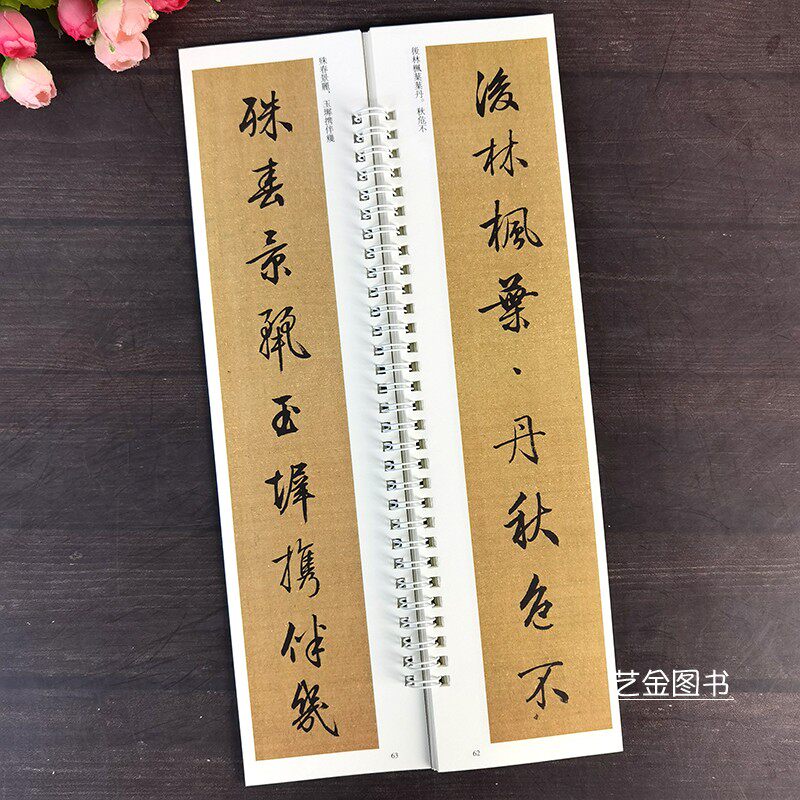 後林楓葉葉丹。秋色不
後林楓葉、丹秋色不
62
殊春景麗，玉墀携伴幾
殊春景麗玉墀携伴幾
63
艺金图书